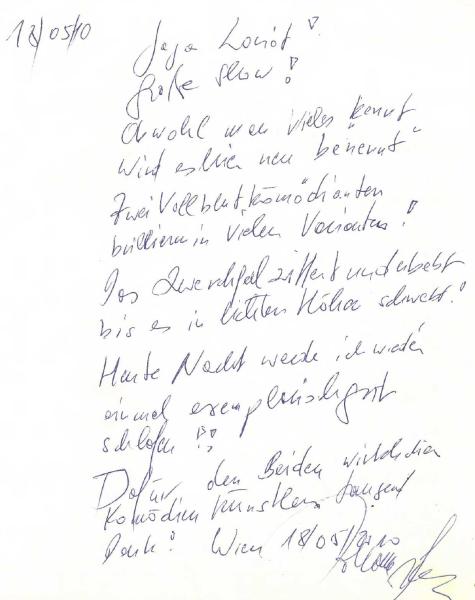 18/05/10
Jaja Loriot!
große Show!
Obwohl man vieles "kennt
wird es hier neu benennt"
Zwei Vollblutkomödianten
brillieren in vielen Varianten!
Das Zwerchfell zittert und bebt
bis es in lichten Höhen schwebt!
Heute Nacht werde ich wieder
einmal exemplarisch gut
schlafen!!
Dafür den Beiden wirklichen
Komödien Künstlern tausend
Dank! Wien 18/05/2010